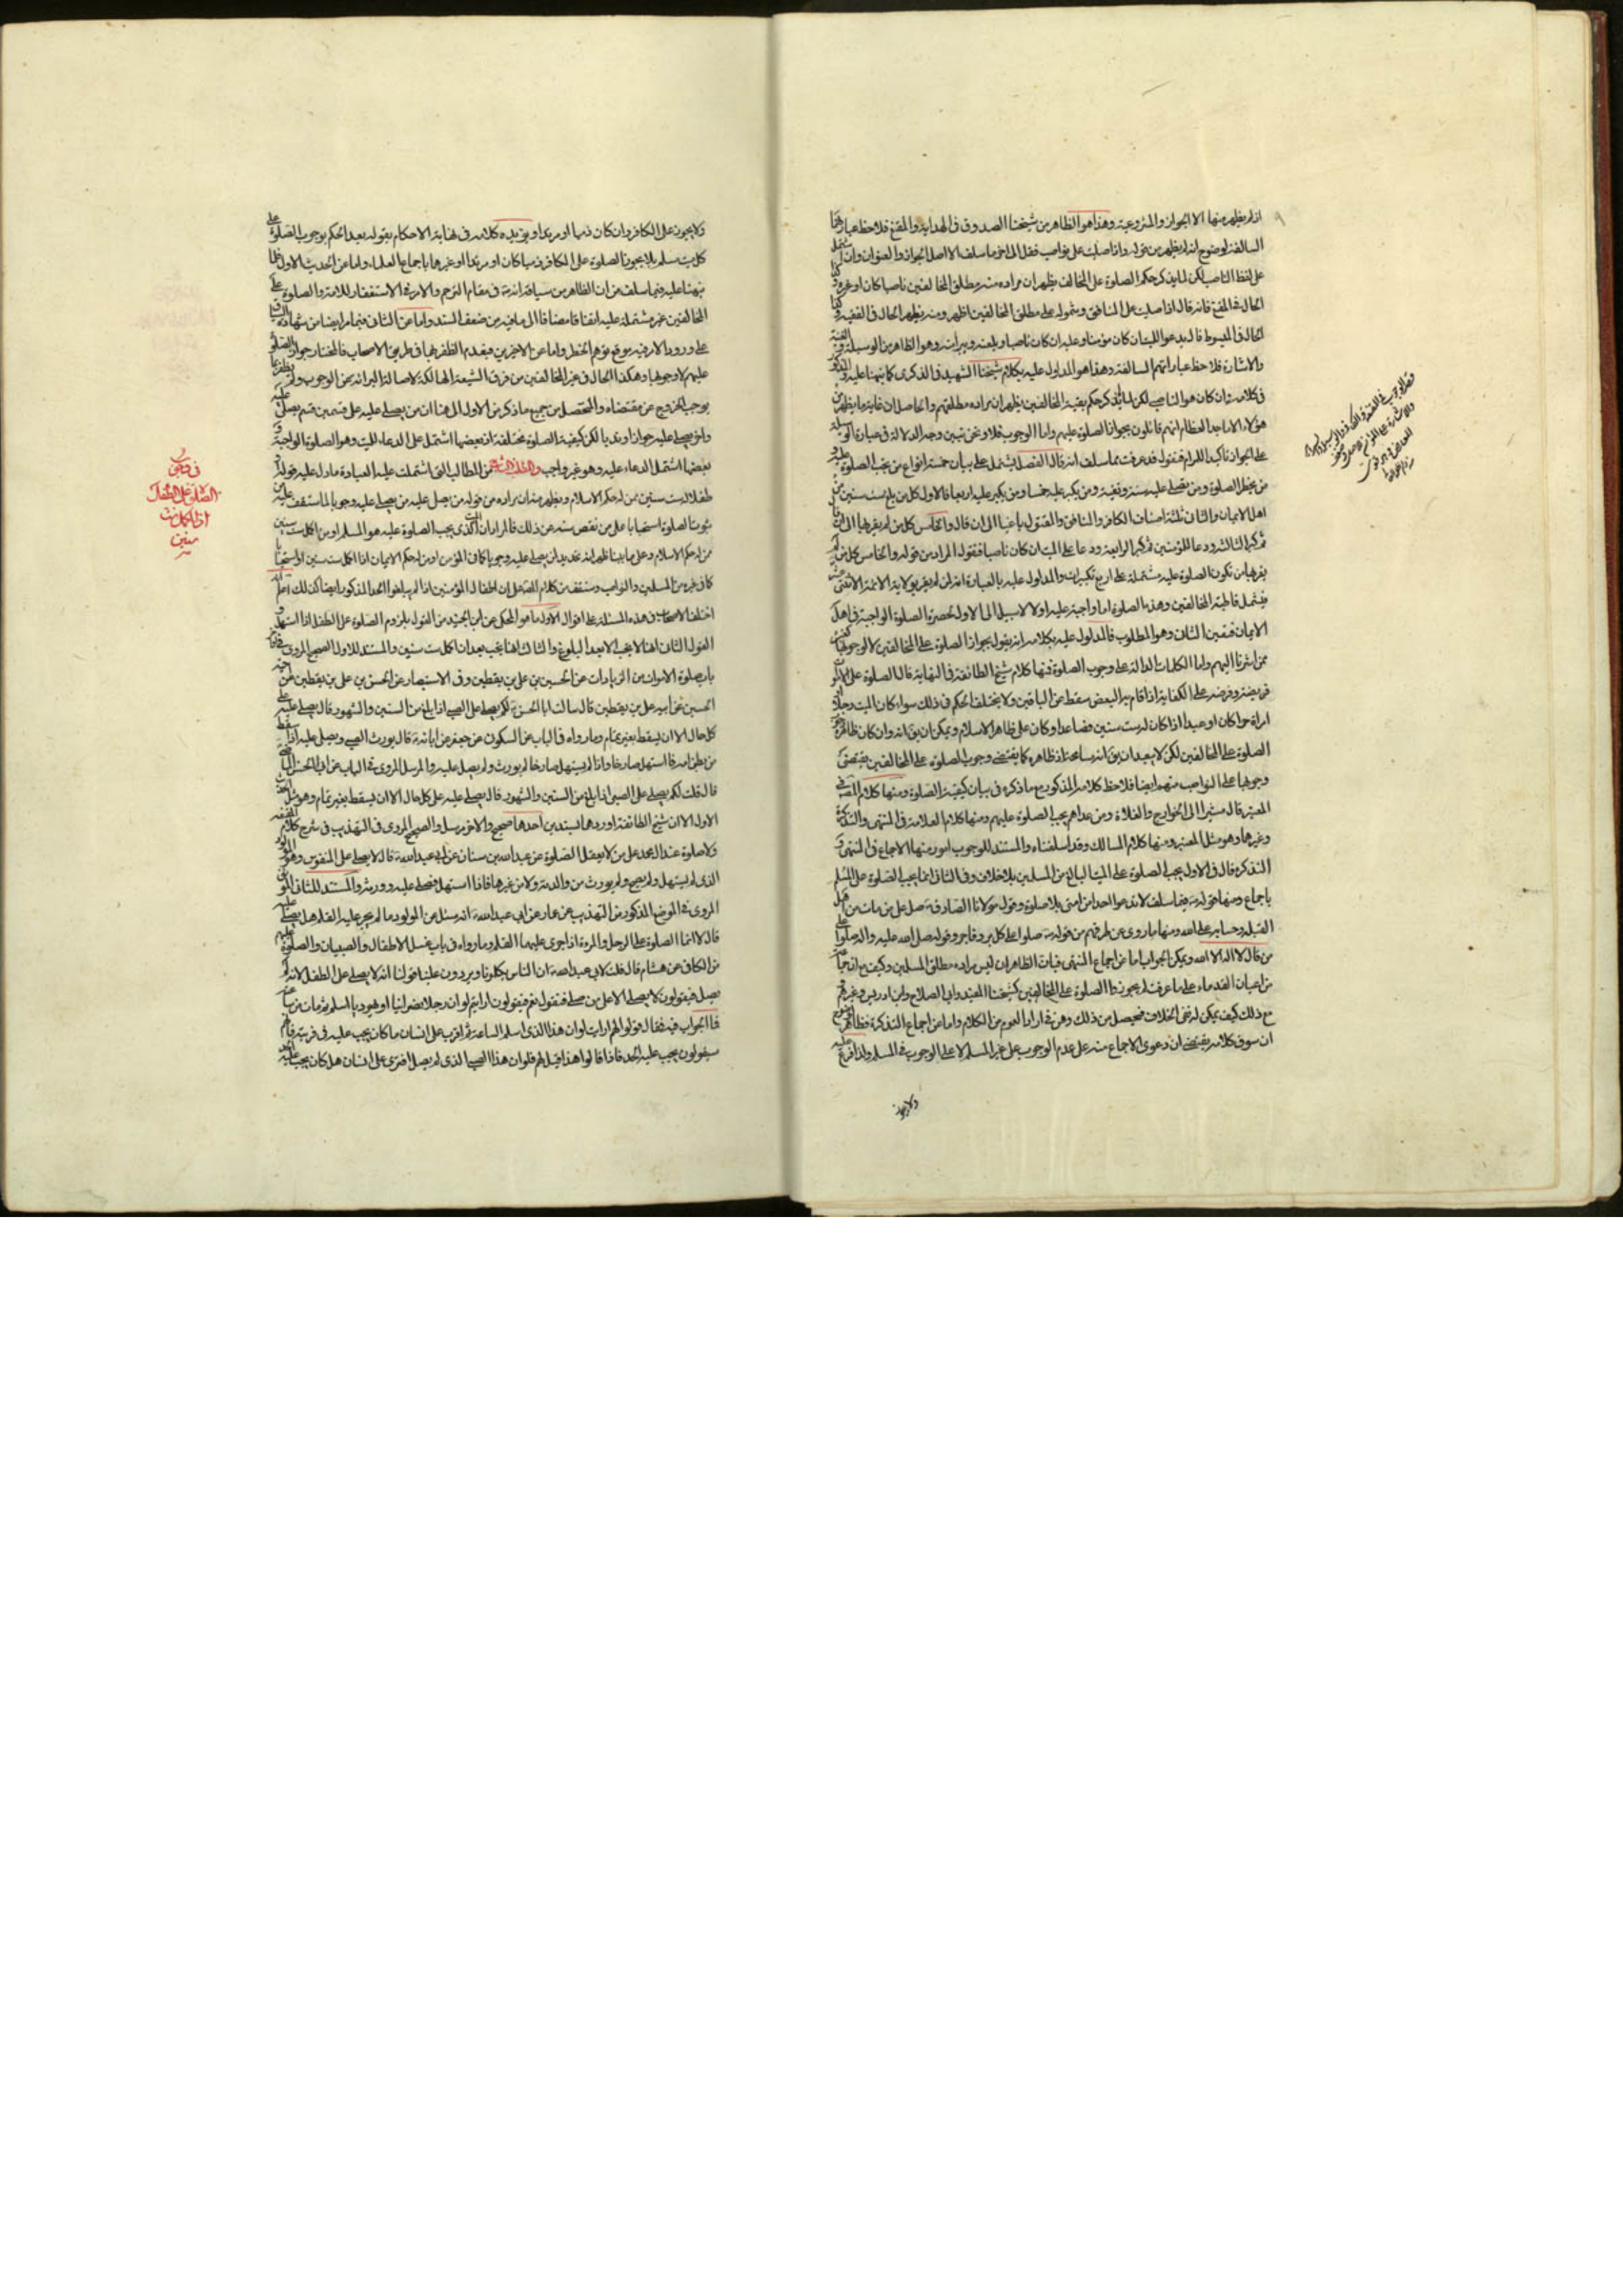 اذ لم يظهر منها الا الجواز والمشروعية وهذا هو الظاهر من شيخنا الصدوق في الهداية والمقنع فلاحظ عبارتهما
السالفة لوضوح انه لم يظهر من قوله واذا صليت على ناصب فقل الى اخر ما سلف الا اصل الجواز والعنوان وان اشتمل
على لفظ الناصب لكن لما لم يذكر حكم الصلوة على المخالف يظهر ان مراده منه مطلق المخالفين ناصبا كان او غيره وكذا
الحال في المقنع فانه قال اذا صليت على المنافق وشموله على مطلق المخالفين اظهر ومنه يظهر الحال في الفقيه وكذا
الحال في المبسوط قال يدعو للميت ان كان مؤمنا وعليه ان كان ناصبا ويلعنه ويبرأ منه وهو الظاهر من الوسيلة والغنية
والاشارة فلاحظ عباراتهم السالفة وهذا هو المدلول عليه بكلام شيخنا الشهيد في الذكرى كما نبهنا عليه والمذكور
في كلامه وان كان هو الناصب لكن لما لم يذكر حكم بقية المخالفين يظهر ان مراده مطلقهم والحاصل ان غاية ما يظهر من
هؤلاء الاماجد العظام انهم قائلون بجواز الصلوة عليهم واما الوجوب فلا ونحن نبين وجه الدلالة في عبارة الوسيلة
على الجواز تأكيدا للمرام فنقول قد عرفت مما سلف انه قال الفصل يشتمل على بيان خمسة انواع من يجب الصلوة عليه و
من يحظر الصلوة ومن يصلى عليه سنة وتقية ومن يكبر عليه خمسا ومن يكبر عليه اربعا فالاول كل من بلغ ست سنين من
اهل الايمان والثاني ثلثة اصناف الكافر والمنافق والمقتول باغيا الى ان قال والخامس كل من لم يقر بها الى ان قال
ثم كبر الثالثة ودعا للمؤمنين ثم كبر الرابعة ودعا على الميت ان كان ناصبا فنقول المراد من قوله والخامس كل من لم
يقر بها من تكون الصلوة عليه مشتملة على اربع تكبيرات والمدلول عليه بالعبارة انه من لم يقر بولاية الائمة الاثنى عشر
فيشمل قاطبة المخالفين وهذه الصلوة اما واجبة عليه اولا لا سبيل الى الاول لحصره الصلوة الواجبة في اهل
الايمان فتعين الثاني وهو المطلوب فالمدلول عليه بكلامه انه يقول بجواز الصلوة على المخالفين لا لوجوبها كغيره
ممن اشرنا اليهم واما الكلمات الدالة على وجوب الصلوة فمنها كلام شيخ الطائفة في النهاية قال الصلوة على الاموات
فريضة وفرضه على الكفاية اذا قام به البعض سقط عن الباقين ولا يختلف الحكم في ذلك سواء كان الميت رجلا او
امرأة حرا كان او عبدا اذا كان له ست سنين فصاعدا وكان على ظاهر الاسلام ويمكن ان يق انه وان كان ظاهره
الصلوة على المخالفين لكن لا يبعد ان يق انه سامحة اذ ظاهره كما يقتضي وجوب الصلوة على المخالفين يقتضي
وجوبها على النواصب منهم ايضا فلاحظ كلامه المذكور مع ما ذكره في بيان كيفية الصلوة ومنها كلام المص في
المعتبر قال مشيرا الى الخوارج والغلاة ومن عداهم يجب الصلوة عليهم ومنها كلام العلامة في المنتهى والتذكرة
وغيرهما وهو مثل المعتبر ومنها كلام المسالك وقد اسلفناه والمستند للوجوب امور منها الاجماع في المنتهى و
التذكرة قال في الاول يجب الصلوة على الميت البالغ من المسلمين بلا خلاف وفي الثاني انما يجب الصلوة على المسلم
باجماع ومنها قوله فيما سلف لا تدعوا احدا من امتي بلا صلوة وقول مولانا الصادق صل على من مات من اهل
القبلة وحسابه على الله ومنها ما روى عن طرقهم من قوله صلوا على كل بر وفاجر وقوله صلى الله عليه واله صلوا على
من قال لا اله الا الله ويمكن الجواب اما عن اجماع المنتهى فبان الظاهر ان ليس مراده مطلق المسلمين وكيف مع ان جماعة
من اعيان القدماء على ما عرفت لم يجوزوا الصلوة على المخالفين كشيخنا المفيد وابي الصلاح وابن ادريس وغيرهم
مع ذلك كيف يمكن له نفى الخلاف فيحصل من ذلك وهن في ارادة العموم من الكلام واما عن اجماع التذكرة فظاهر
ان سوق كلامه يقتضي ان دعوى الاجماع منه على عدم الوجوب على غير المسلم لا على الوجوب في المسلم ولذا فرع عليه
ولا يجوز
ولا يجوز على الكافر وان كان ذميا او مرتدا ويؤيده كلامه في نهاية الاحكام بقوله بعد الحكم بوجوب الصلوة على
كل ميت مسلم ولا يجوز الصلوة على الكافر ذميا كان او مرتدا او غيرهما باجماع العلماء واما عن الحديث الاول فلما
نبهنا عليه فيما سلف من ان الظاهر من سياقه انه في مقام الترحم والامر في الاستغفار للامة والصلوة على
المخالفين غير مشتملة عليه اتفاقا مضافا الى ما فيه من ضعف السند واما عن الثاني فيما مر ايضا من شهادة
على ورود الامر فيه موقع توهم الحظر واما عن الاخيرين فبعدم الظفر بهما في طريق الاصحاب فالمختار جواز الصلوة
عليهم لا وجوبها وهكذا الحال في غير المخالفين من فرق الشيعة الهالكة لاصالة البرائة عن الوجوب ولم يظهر ما
يوجب الخروج عن مقتضاه والمتحصل من جميع ما ذكر من الاول الى هنا ان من يصلى عليه على قسمين قسم يصلى عليه
واخر يصلى عليه جوازا وندبا لكن كيفية الصلوة مختلفة اذ بعضها اشتمل على الدعاء للميت وهو الصلوة الواجبة و
بعضها اشتمل الدعاء عليه وهو غير واجب والمطلب الثالث من المطالب التي اشتملت عليه العبادة ما دل عليه قوله او
طفلا له ست سنين ممن له حكم الاسلام
ثبوت الصلوة استحبابا على من نقص سنه عن ذلك فالمراد ان الذي يجب الصلوة عليه هو المسلم او من اكمل ست سنين
ممن له حكم الاسلام
اختلف الاصحاب في هذه المسئلة على اقوال الاول ما هو المحكى عن ابن الجنيد من القول بلزوم الصلوة على الطفل اذا استهل و
القول الثاني انها لا يجب الا بعد البلوغ والثالث انها يجب بعد ان اكمل ست سنين والمستند للاول الصحيح المروى في
باب صلوة الاموات من الزيادات عن الحسين بن علي بن يقطين وفي الاستبصار عن الحسن بن علي بن يقطين عن اخيه
الحسين عن ابيه علي بن يقطين قال سالت ابا الحسن لكم يصلى على الصبي اذا بلغ من السنين والشهور قال يصلى عليه على
كل حال الا ان يسقط بغير تمام وما رواه في الباب عن السكوني عن جعفر عن ابائه قال يورث الصبي ويصلى عليه اذا سقط
من بطن امه فاستهل صارخا واذا لم يستهل صارخا لم يورث ولم يصل عليه والمرسل المروى في الباب عن ابي الحسن الماضي
قال قلت لكم يصلى على الصبي اذا بلغ من السنين والشهور قال يصلى عليه على كل حال الا ان يسقط بغير تمام وهو مثل الحديث
الاول الا ان شيخ الطائفة اوردهما بسندين احدهما صحيح والاخر مرسل والصحيح المروى في التهذيب في شرح كلام المقنعة
ولا صلوة عند ال محمد على من لا يعقل الصلوة عن عبد الله بن سنان عن ابي عبد الله قال لا يصلى على المنفوس وهو المولود
الذي لم يستهل ولم يصح ولم يورث من والدية ولا من غيرها فاذا استهل فصل عليه وورثه والمستند للثاني الموثق
المروى في الموضع المذكور من التهذيب عن عمار عن ابي عبد الله انه سئل عن المولود ما لم يجر عليه القلم هل يصلى عليه
قال لا انما الصلوة على الرجل والمرءة اذا جرى عليهما القلم وما رواه في باب غسل الاطفال والصبيان والصلوة عليهم
من الكافي عن هشام قال قلت لابي عبد الله ان الناس يكلمونا ويردون علينا قولنا انه لا يصلى على الطفل لانه لم
يصل فيقولون لا يصلى الا على من صلى فنقول نعم فيقولون ارايتم لو ان رجلا نصرانيا او يهوديا اسلم ثم مات من ساعته
فما الجواب فيه فقال قولوا لهم ارايت لو ان هذا الذي اسلم الساعة ثم افترى على انسان ما كان يجب عليه في فريته فانهم
سيقولون يجب عليه الحد فاذا قالوا هذا قيل لهم فلو ان هذا الصبي الذي لم يصل افترى على انسان هل كان يجب عليه الحد
في وجوب
الصلوة على الطفل
اذا اكمل ست
سنين